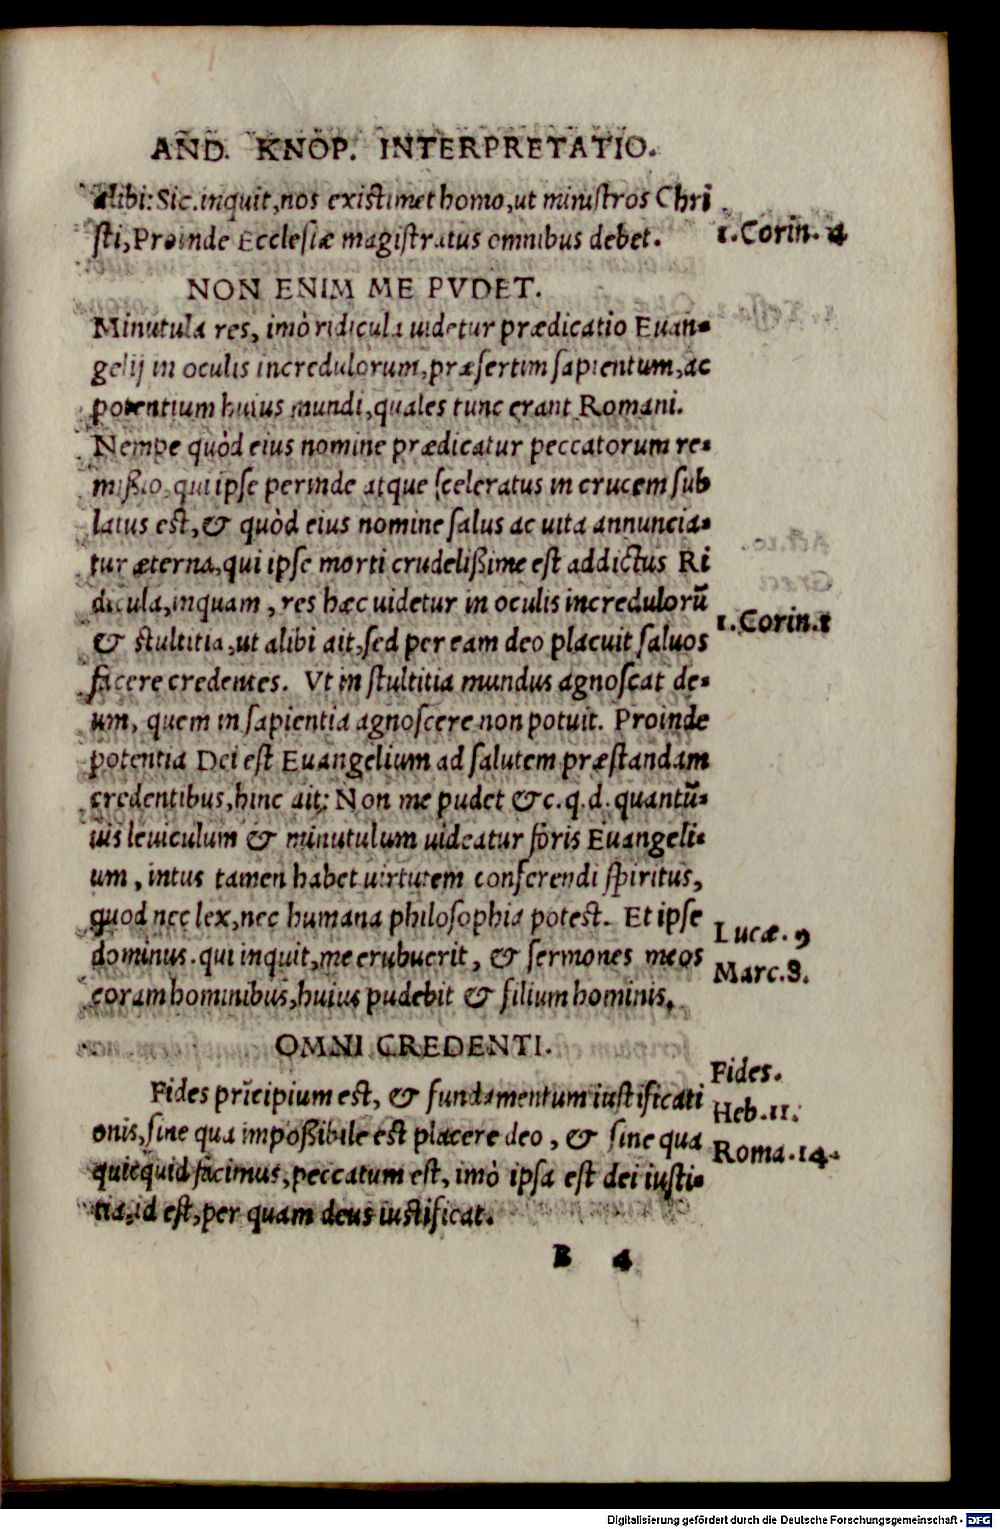 AND. KNOP. INTERPRETATIO.
alibi: Sic. inquit, nos existimet homo, ut ministros Chri
sti, Proinde Ecclesiæ magistratus omnibus debet.
1. Corin. 4
NON ENIM ME PVDET.
Minutula res, imò ridicula uidetur prædicatio Euan-
gelij in oculis incredulorum, præsertim sapientum, ac
potentium huius mundi, quales tunc erant Romani.
Nempe quòd eius nomine prædicatur peccatorum re-
mißio, qui ipse perinde atque sceleratus in crucem sub
latus est, & quòd eius nomine salus ac uita annuncia-
tur æterna, qui ipse morti crudelißime est addictus Ri
dicula, inquam, res hæc uidetur in oculis incredulorũ
1. Corin. 1
& stultitia, ut alibi ait, sed per eam deo placuit saluos
facere credentes. Vt in stultitia mundus agnoscat de-
um, quem in sapientia agnoscere non potuit. Proinde
potentia Dei est Euangelium ad salutem præstandam
credentibus, hinc ait: Non me pudet &c. q. d. quantũ-
uis leuiculum & minutulum uideatur foris Euangeli-
um, intus tamen habet uirtutem conferendi spiritus,
quod nec lex, nec humana philosophia potest. Et ipse
Lucæ. 9
dominus. qui inquit, me erubuerit, & sermones meos
Marc. 8.
coram hominibus, huius pudebit & filium hominis.
OMNI CREDENTI.
Fides.
Fides prĩcipium est, & fundamentum iustificati
Heb. 11.
onis, sine qua impoßibile est placere deo, & sine qua
Roma. 14.
quicquid facimus, peccatum est, imò ipsa est dei iusti-
tia, id est, per quam deus iustificat.
B 4
Digitalisierung gefördert durch die Deutsche Forschungsgemeinschaft - DFG